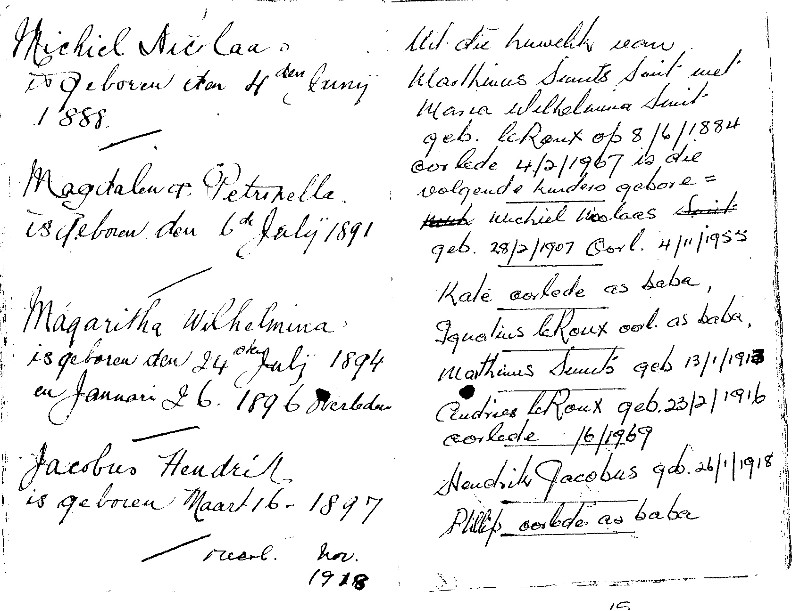 Michiel Nicolaas
is geboren den 4 den Juny
1888.
Magdalena Petronella.
is geboren den 6 de July 1891
Magaritha Wilhelmina
is geboren den 24 sten July 1894
en Januari 26. 1896 Overleden
Jacobus Hendrik
is geboren Maart 16 - 1897
overl. Nov.
1918
Uit die huwelik van
Marthinus Smuts Smit met
Maria Wilhelmina Smit
geb. le Roux op 8/6/1884
oorlede 4/2/1967 is die
volgende kinders gebore =
Michiel Nicolaas Smit
geb. 28/2/1907 Oorl. 4/11/1955
Kate oorlede as baba,
Ignatius le Roux oorl. as baba,
Marthinus Smuts geb 13/1/1913
Andries le Roux geb. 23/2/1916
oorlede /6/1969
Hendrik Jacobus geb. 26/1/1918
Phillip oorlede as baba